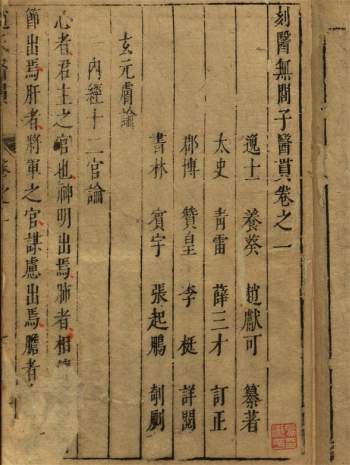 刻醫無閭子醫貫卷之一
逸士 養葵 趙獻可 纂著
太史 青雷 薛三才 訂正
郡博 贊皇 李楩 詳閱
書林 賓宇 張起鵬 剞劂
玄元膚論
內經十二官論
心者君主之官也神明出焉肺者相
節出焉肝者將軍之官謀慮出焉膽者
卷之一